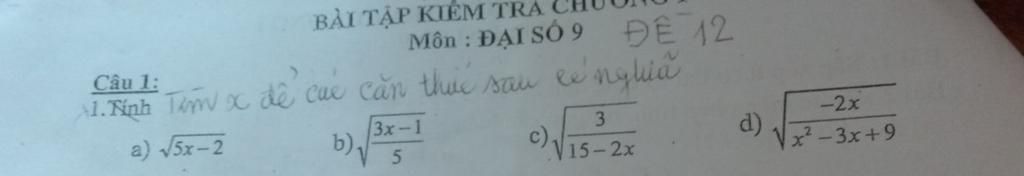 BÀI TẬP KIỂM TRA CHƯƠNG
Môn : ĐẠI SỐ 9 ĐỀ 12
Câu 1:
1.Tính Tìm x để các căn thức sau có nghĩa
a) √(5x−2) b) √((3x−1)/5) c) √(3/(15−2x)) d) √(−2x/(x²−3x+9))